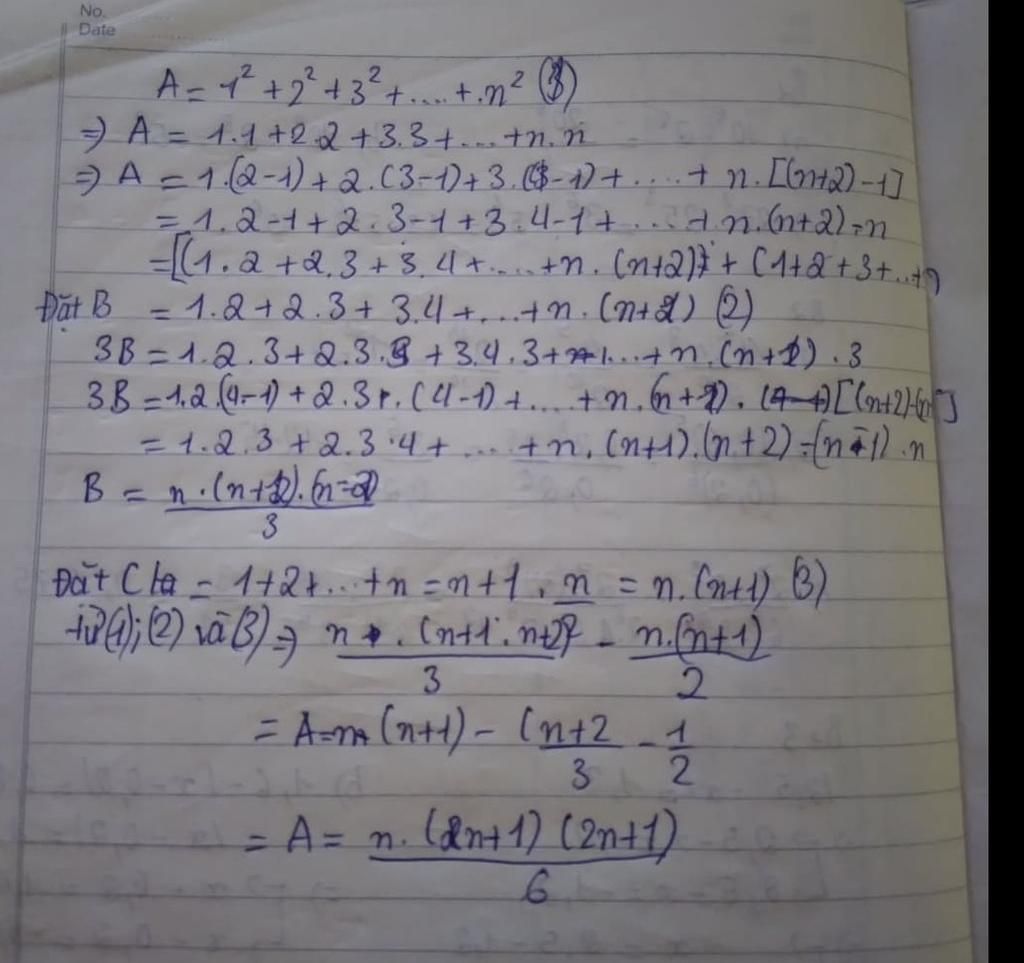 No.
Date
A = 1² + 2² + 3² + .... + n² (1)
=> A = 1.1 + 2.2 + 3.3 + ... + n.n
=> A = 1.(2-1) + 2.(3-1) + 3.(4-1) + .... + n.[(n+2)-1]
= 1.2-1 + 2.3-1 + 3.4-1 + ... + n.(n+2)-n
=[(1.2 + 2.3 + 3.4 + .... + n.(n+2)] + (1+2+3+..+
Đặt B = 1.2 + 2.3 + 3.4 + ... + n.(n+2) (2)
3B = 1.2.3 + 2.3.3 + 3.4.3 + ... + n.(n+1).3
3B = 1.2.(4-1) + 2.3.(4-1) + .... + n.(n+1).[(n+2)-(n
= 1.2.3 + 2.3.4 + ... + n.(n+1).(n+2)-(n-1).n
B = n.(n+1).(n-2)
3
Đặt C = 1+2+...+n = n+1.n = n.(n+1) (3)
từ (1); (2) và (3) => n.(n+1.n+2) - n.(n+1)
3 2
= A = n (n+1) - (n+2 - 1
3 2
= A = n.(2n+1)(2n+1)
6